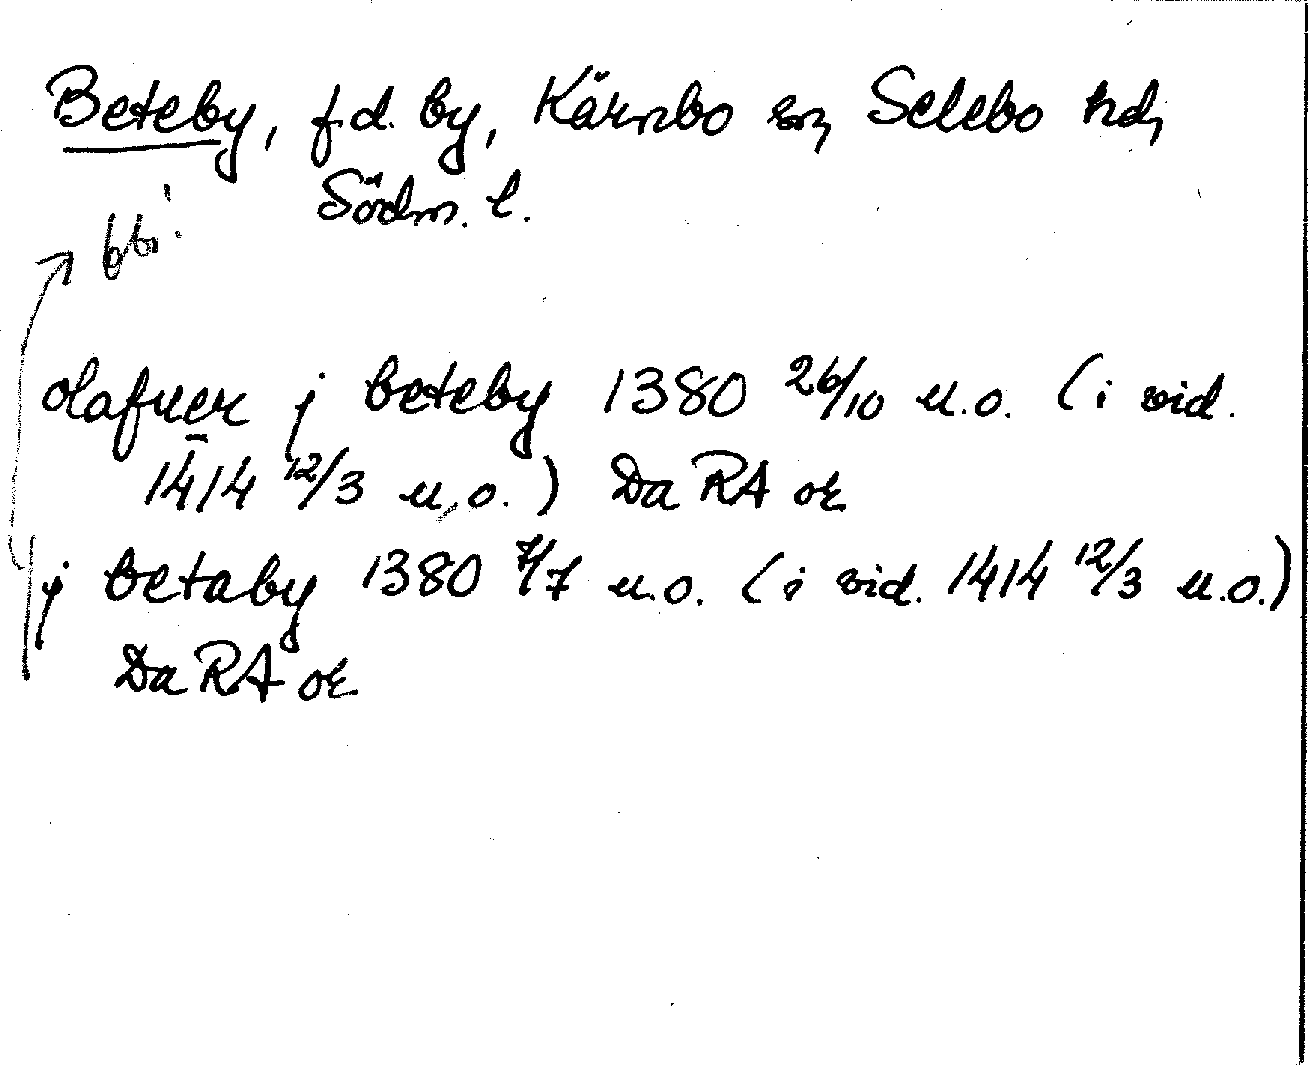 Beteby, f.d. by, Kärnbo sn, Selebo hd,
Södm. l.
olafuer j beteby 1380 26/10 u.o. (i vid.
1414 12/3 u.o.) Da RA or
j betaby 1380 7/7 u.o. (i vid. 1414 12/3 u.o.)
Da RA or